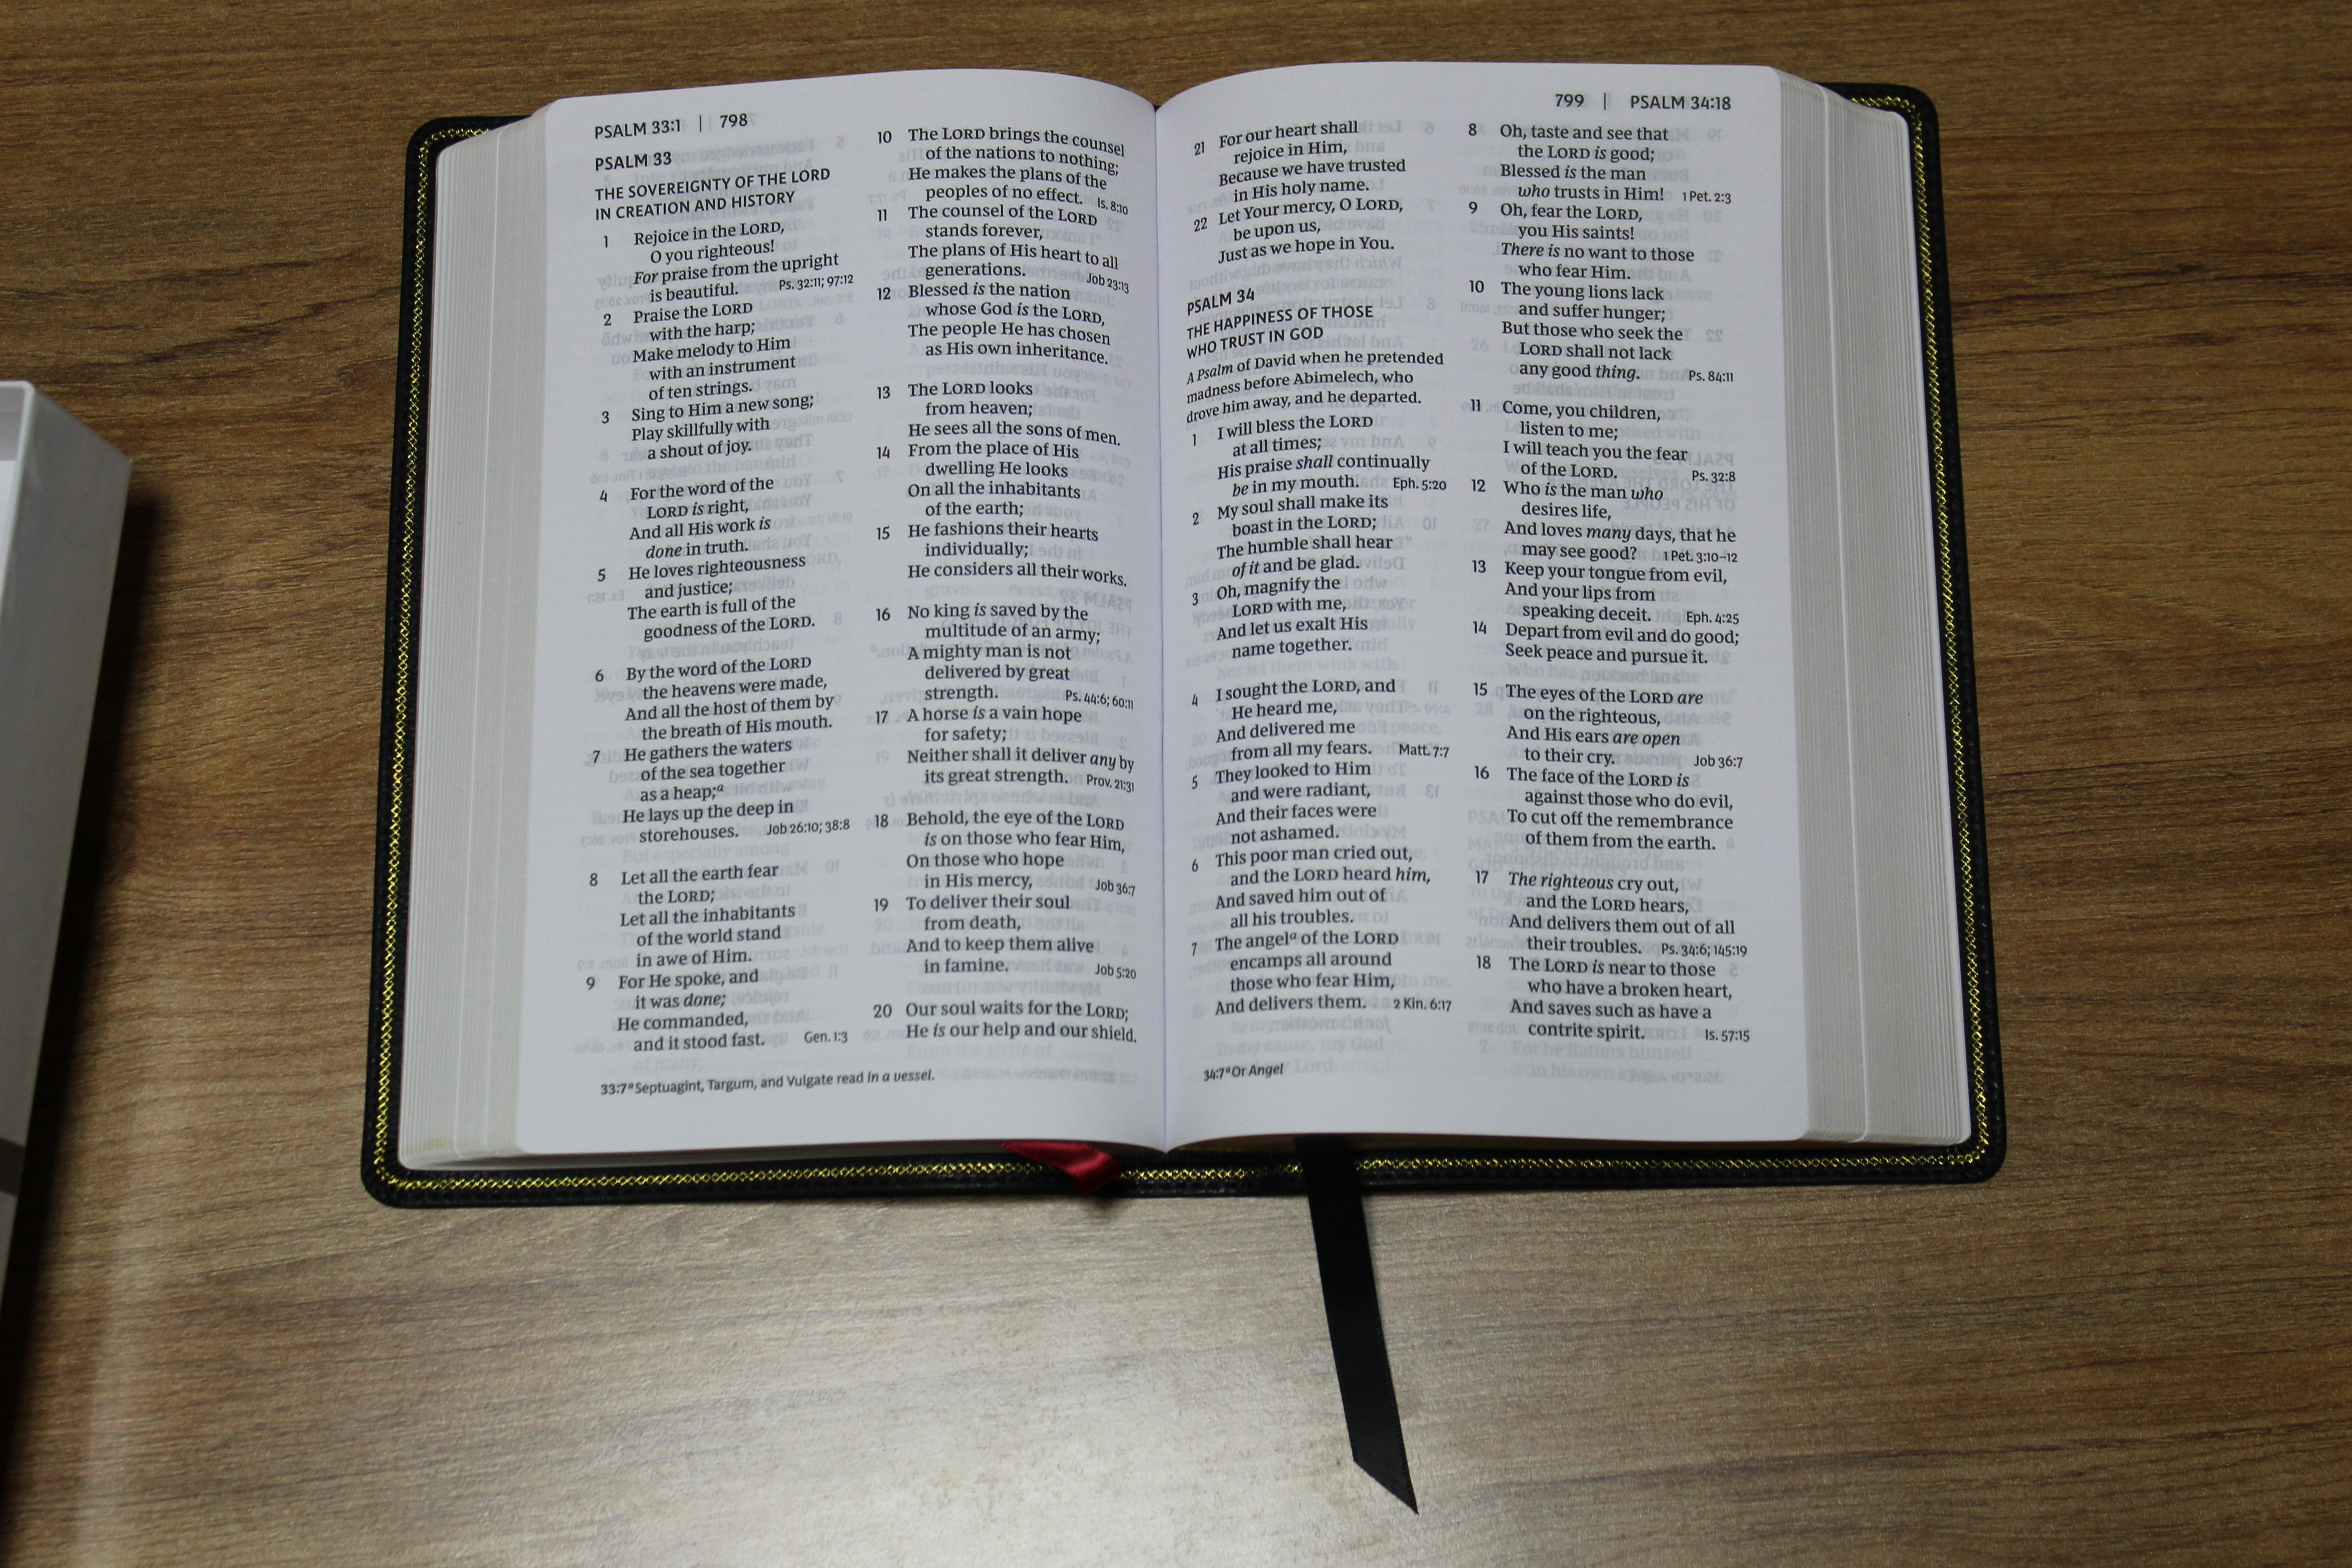 PSALM 33:1 | 798
PSALM 33
THE SOVEREIGNTY OF THE LORD
IN CREATION AND HISTORY
1 Rejoice in the LORD,
O you righteous!
For praise from the upright
is beautiful. Ps. 32:11; 97:12
2 Praise the LORD
with the harp;
Make melody to Him
with an instrument
of ten strings.
3 Sing to Him a new song;
Play skillfully with
a shout of joy.
4 For the word of the
LORD is right,
And all His work is
done in truth.
5 He loves righteousness
and justice;
The earth is full of the
goodness of the LORD.
6 By the word of the LORD
the heavens were made,
And all the host of them by
the breath of His mouth.
7 He gathers the waters
of the sea together
as a heap;a
He lays up the deep in
storehouses. Job 26:10; 38:8
8 Let all the earth fear
the LORD;
Let all the inhabitants
of the world stand
in awe of Him.
9 For He spoke, and
it was done;
He commanded,
and it stood fast. Gen. 1:3
10 The LORD brings the counsel
of the nations to nothing;
He makes the plans of the
peoples of no effect. Is. 8:10
11 The counsel of the LORD
stands forever,
The plans of His heart to all
generations. Job 23:13
12 Blessed is the nation
whose God is the LORD,
The people He has chosen
as His own inheritance.
13 The LORD looks
from heaven;
He sees all the sons of men.
14 From the place of His
dwelling He looks
On all the inhabitants
of the earth;
15 He fashions their hearts
individually;
He considers all their works.
16 No king is saved by the
multitude of an army;
A mighty man is not
delivered by great
strength. Ps. 44:6; 60:11
17 A horse is a vain hope
for safety;
Neither shall it deliver any by
its great strength. Prov. 21:31
18 Behold, the eye of the LORD
is on those who fear Him,
On those who hope
in His mercy, Job 36:7
19 To deliver their soul
from death,
And to keep them alive
in famine. Job 5:20
20 Our soul waits for the LORD;
He is our help and our shield.
33:7 a Septuagint, Targum, and Vulgate read in a vessel.
799 | PSALM 34:18
21 For our heart shall
rejoice in Him,
Because we have trusted
in His holy name.
22 Let Your mercy, O LORD,
be upon us,
Just as we hope in You.
PSALM 34
THE HAPPINESS OF THOSE
WHO TRUST IN GOD
A Psalm of David when he pretended
madness before Abimelech, who
drove him away, and he departed.
1 I will bless the LORD
at all times;
His praise shall continually
be in my mouth. Eph. 5:20
2 My soul shall make its
boast in the LORD;
The humble shall hear
of it and be glad.
3 Oh, magnify the
LORD with me,
And let us exalt His
name together.
4 I sought the LORD, and
He heard me,
And delivered me
from all my fears. Matt. 7:7
5 They looked to Him
and were radiant,
And their faces were
not ashamed.
6 This poor man cried out,
and the LORD heard him,
And saved him out of
all his troubles.
7 The angela of the LORD
encamps all around
those who fear Him,
And delivers them. 2 Kin. 6:17
8 Oh, taste and see that
the LORD is good;
Blessed is the man
who trusts in Him! 1 Pet. 2:3
9 Oh, fear the LORD,
you His saints!
There is no want to those
who fear Him.
10 The young lions lack
and suffer hunger;
But those who seek the
LORD shall not lack
any good thing. Ps. 84:11
11 Come, you children,
listen to me;
I will teach you the fear
of the LORD. Ps. 32:8
12 Who is the man who
desires life,
And loves many days, that he
may see good? 1 Pet. 3:10–12
13 Keep your tongue from evil,
And your lips from
speaking deceit. Eph. 4:25
14 Depart from evil and do good;
Seek peace and pursue it.
15 The eyes of the LORD are
on the righteous,
And His ears are open
to their cry. Job 36:7
16 The face of the LORD is
against those who do evil,
To cut off the remembrance
of them from the earth.
17 The righteous cry out,
and the LORD hears,
And delivers them out of all
their troubles. Ps. 34:6; 145:19
18 The LORD is near to those
who have a broken heart,
And saves such as have a
contrite spirit. Is. 57:15
34:7 a Or Angel